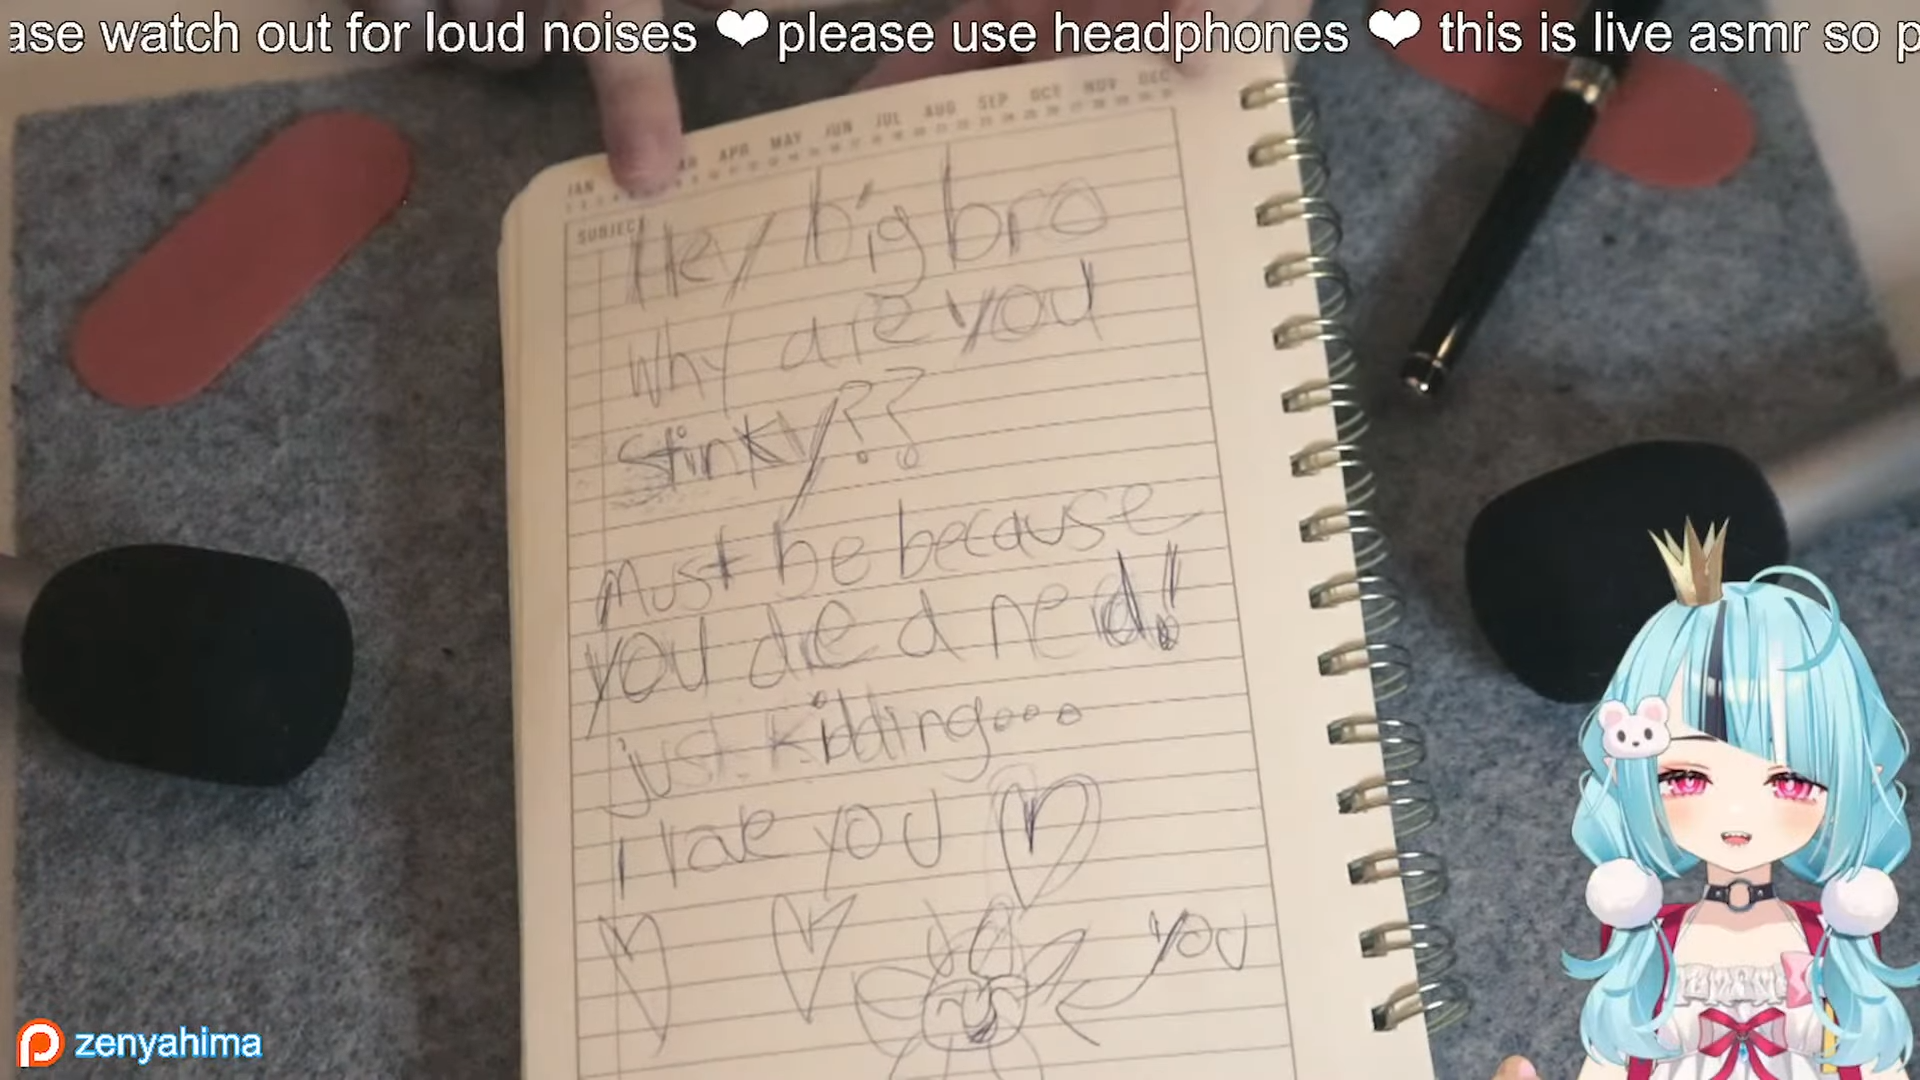 ase watch out for loud noises ❤please use headphones ❤ this is live asmr so p
JAN MAR APR MAY JUN JUL AUG SEP OCT NOV DEC
SUBJECT
Hey big bro
why are you
stinky??
must be because
you are a nerd!
just kidding...
i love you ♡
you
zenyahima